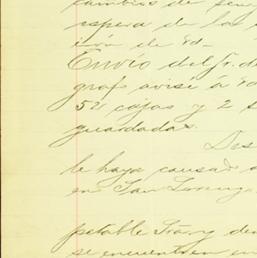 cambios de
espera de las
ción de Ed.
Envío del Sr. d
graf avisé á Ed
521 cajas y 2 s
guardadas.
Des
le haya causado
en San Lorenzo
potable Ivany de
se encuentren en